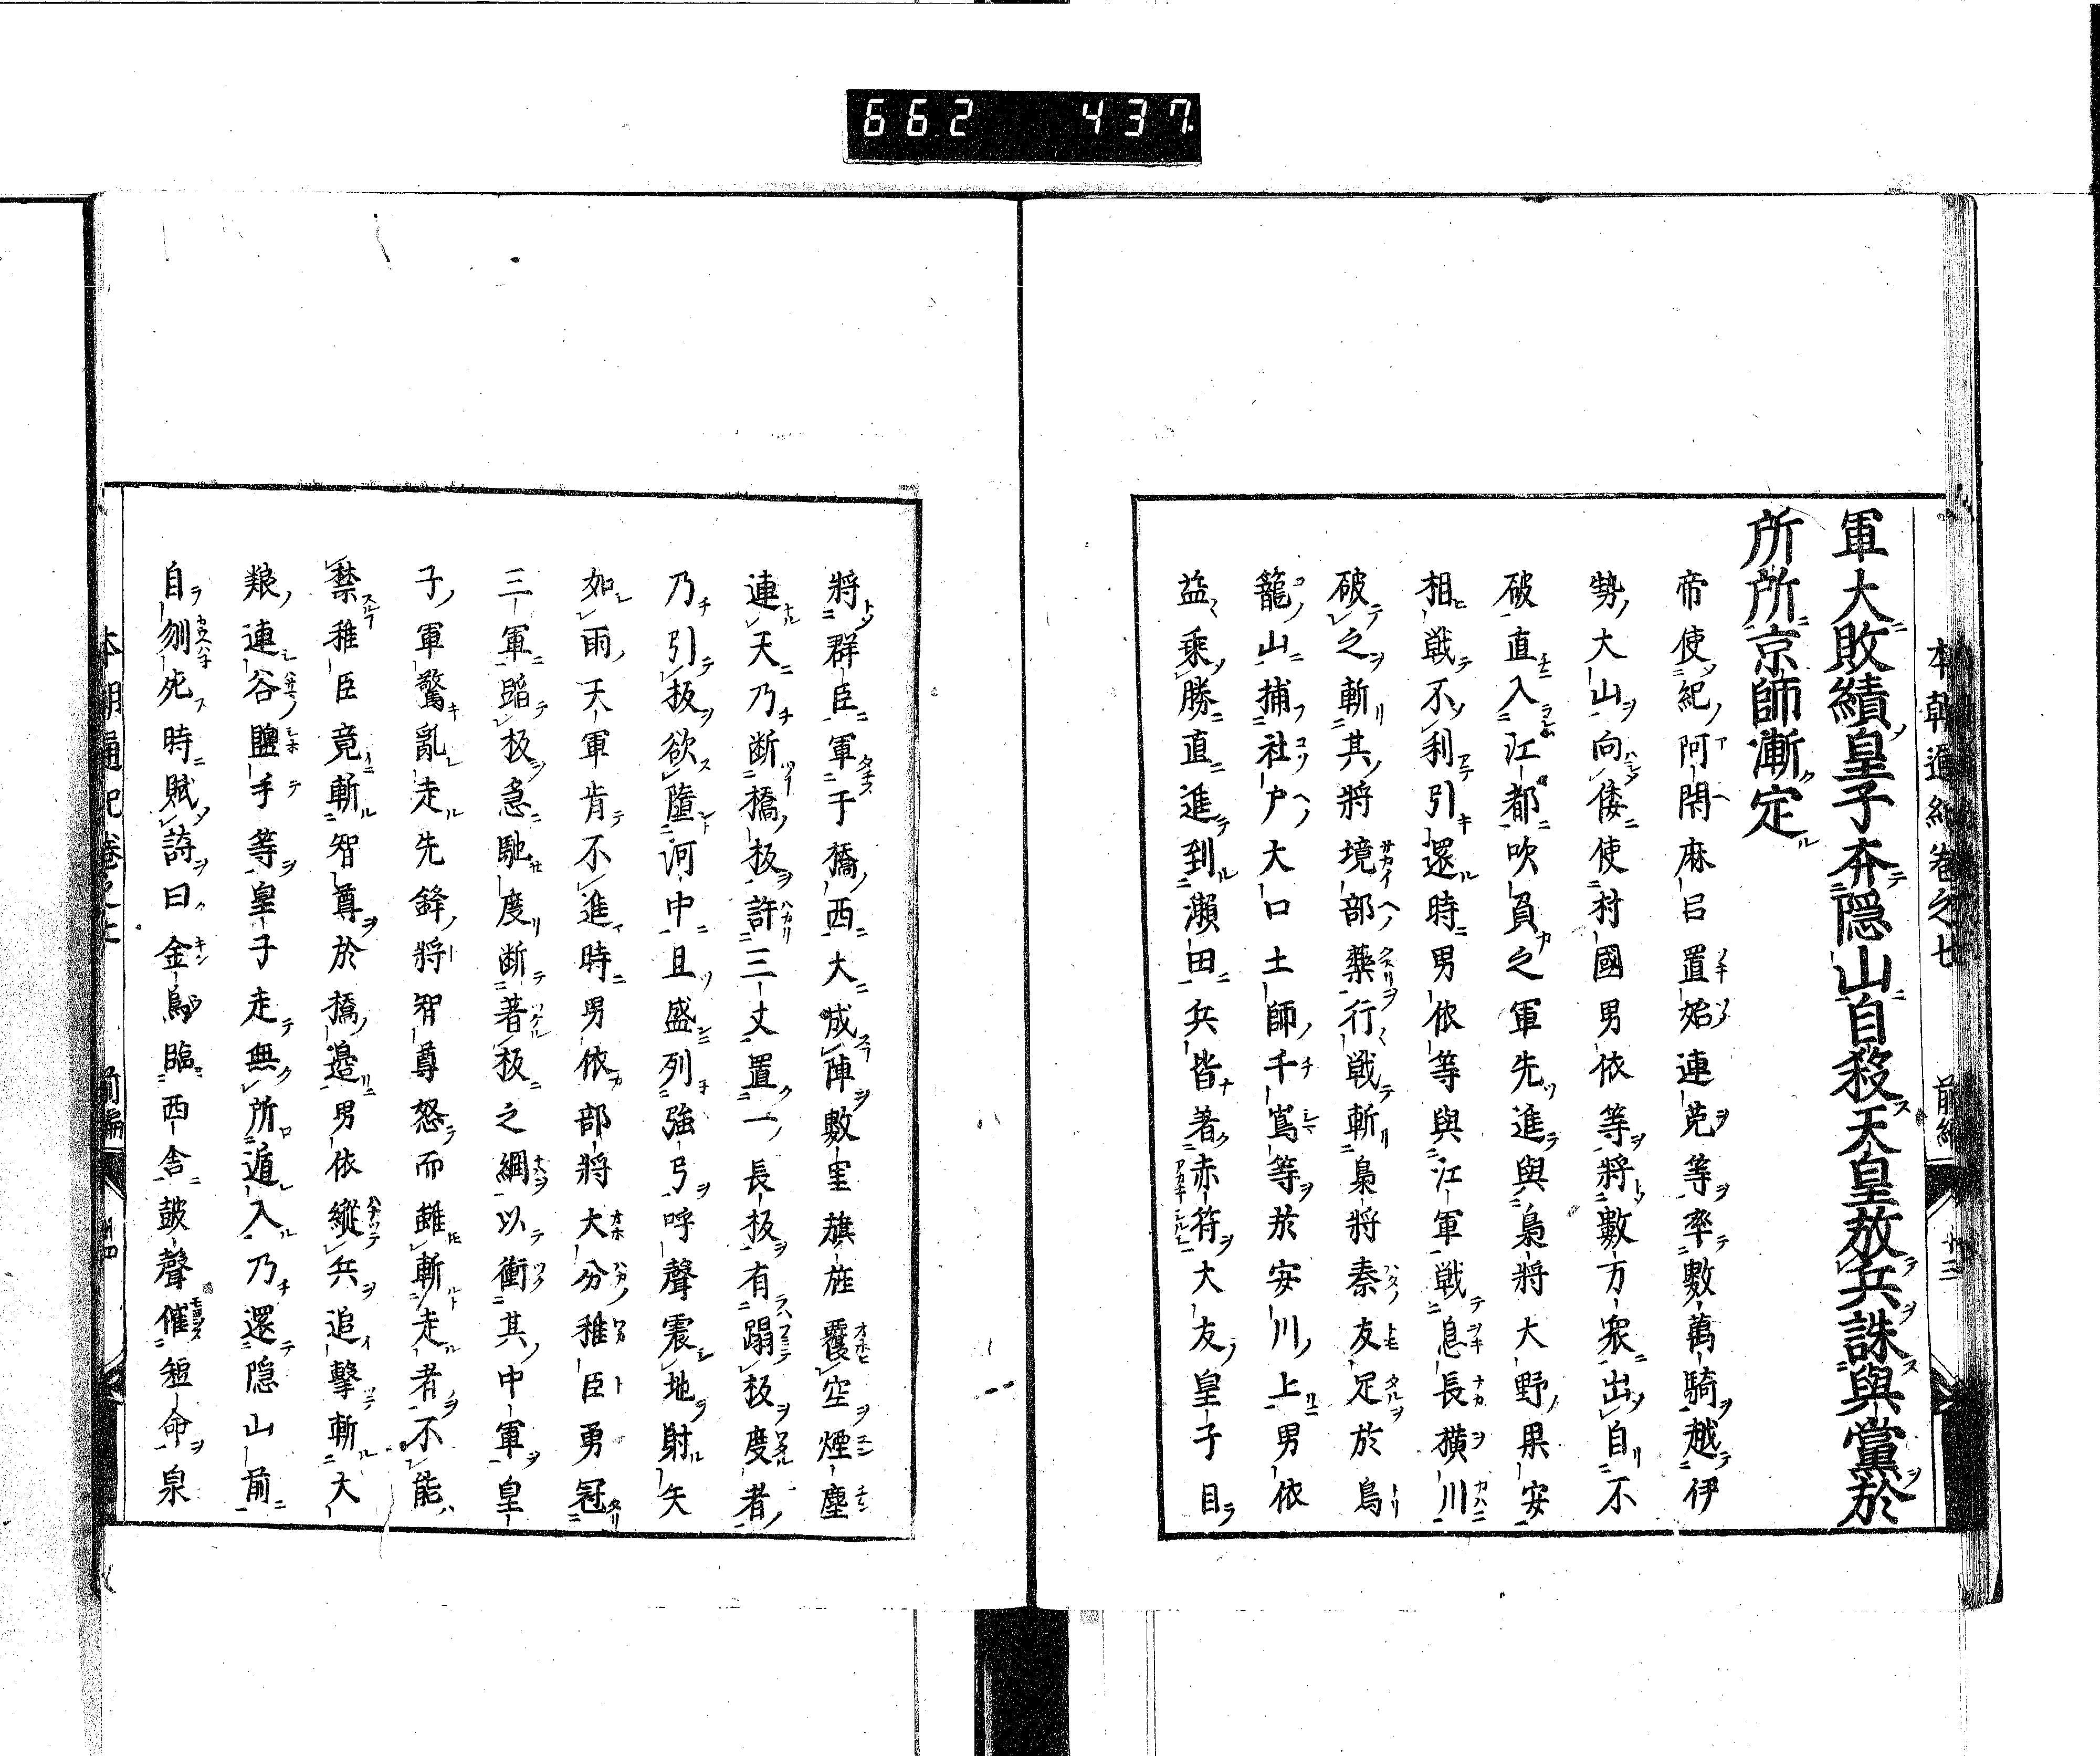 662 437
本朝通紀卷之七 前編
軍大敗績皇子奔隱山自殺天皇放兵誅與黨於
所所京師漸定
帝使紀阿閇麻呂置始連菟等率數萬騎越伊
勢大山向倭使村國男依等將數万衆出自不
破直入江都吹負之軍先進與梟將大野果安
相戦不利引還時男依等與江軍戦息長横川
破之斬其將境部藥行戦斬梟將秦友足於鳥
籠山捕社戸大口土師千嶌等於安川上男依
益乘勝直進到瀬田兵皆著赤符大友皇子自
將群臣軍于橋西大成陣數里旗旌覆空煙塵
連天乃断橋板許三丈置一長板有蹋板度者
乃引板欲墮河中且盛列強弓呼聲震地射矢
如雨天軍肯不進時男依部將大分稚臣勇冠
三軍蹈板急馳度断著板之綱以衝其中軍皇
子軍驚亂走先鋒將智尊怒而雖斬走者不能
禁稚臣竟斬智尊於橋邊男依縱兵追擊斬犬
養連谷鹽手等皇子走無所遁入乃還隱山前
自刎死時賦詩曰金烏臨西舎皷聲催短命泉
本朝通紀卷之七 前編